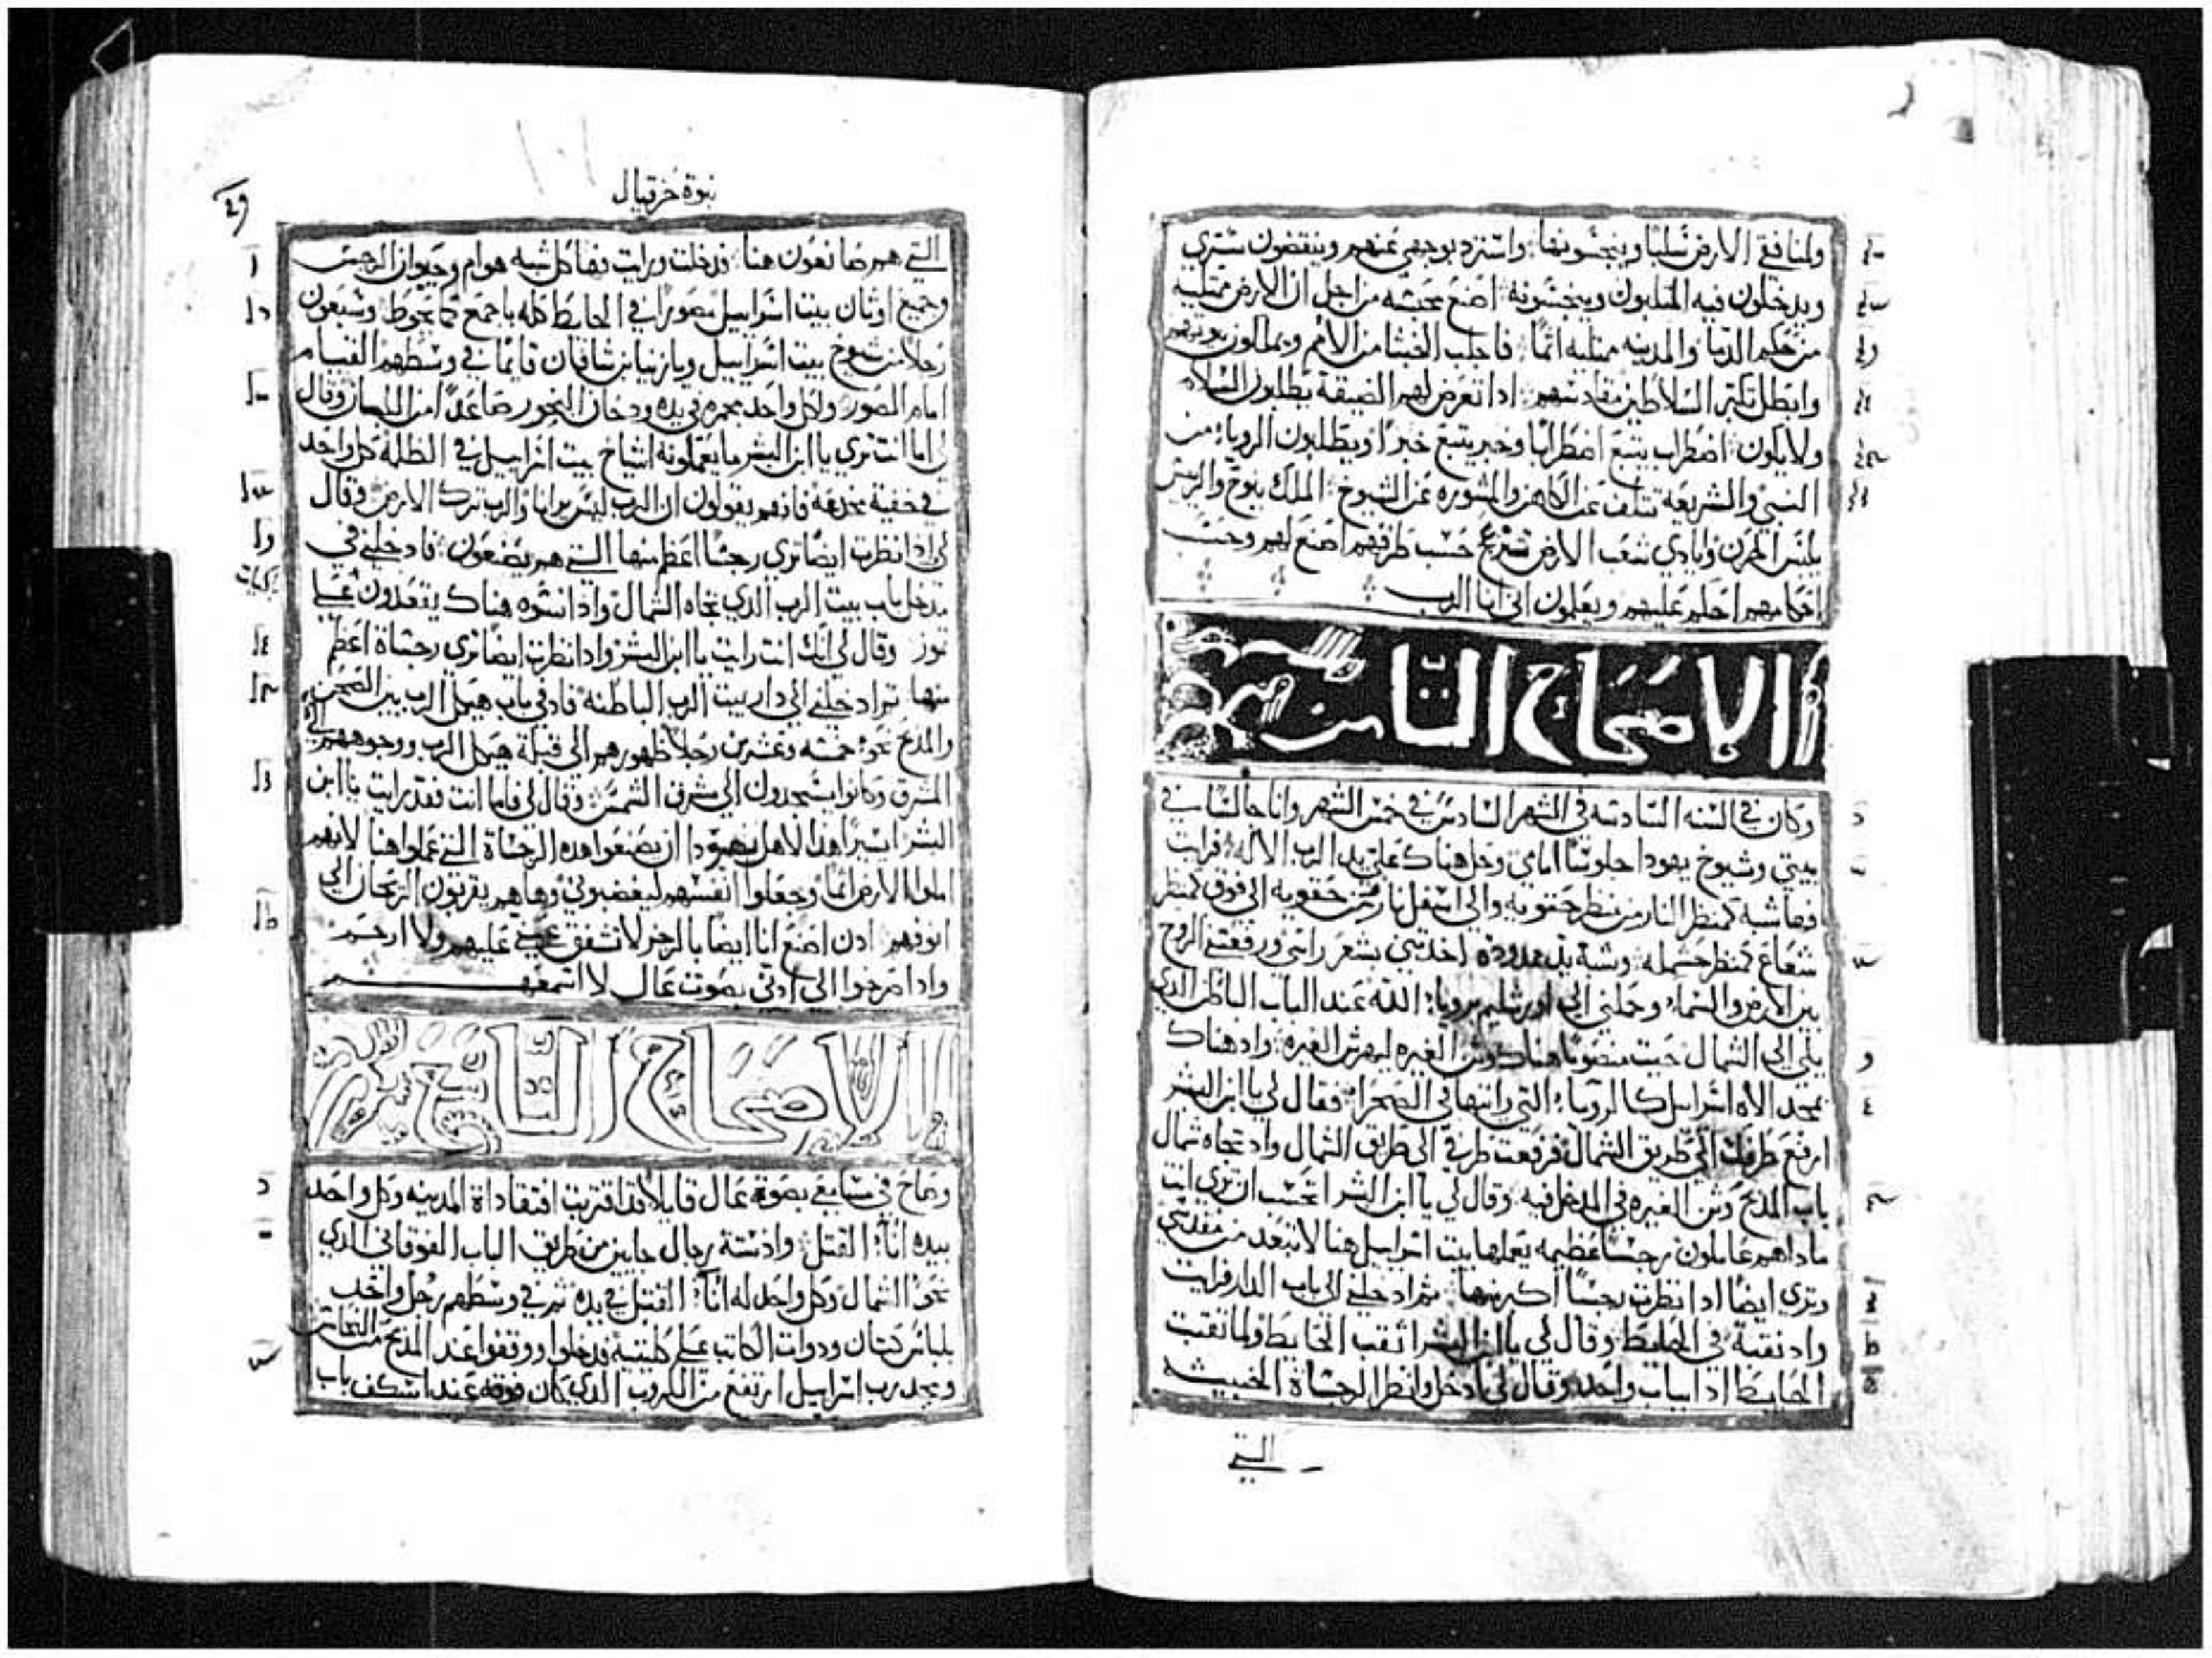 ولمنافقي الارض سلبا وينجسونها واسترد بوجهي عنهم وينقضون ستري
ويدخلون فيه السلابون وينجسونه اصنع محبسه من اجل ان الارض ممتليه
من حكم الدما والمدينه ممتليه اثما فاجلب الخبثا من الامم ويملكون بيوتهم
وابطل تكبر السلاطين مقادسهم اذا تعرض لهم الضيقة يطلبون السلام
ولا يكون اضطراب يتبع اضطرابا وخبر يتبع خبرا ويطلبون الرويا من
النبي والشريعه تتلف عن الكاهن والمشوره عن الشيوخ الملك ينوح والريس
يلبس الحزن وايادي شعب الارض حسب طرقهم اصنع لهم وحسب
احكامهم احكم عليهم ويعلمون اني انا الرب
الاصحاح الثامن
وكان في السنه السادسه في الشهر السادس في خمس الشهر وانا جالسا في
بيتي وشيوخ يهودا جلوسا امامي وحل هناك علي يد الرب الاله فرايت
فهاشبه كمنظر النار من منظر حقويه والى اسفل نار ومن حقويه الى فوق كمنظر
شعاع كمنظر حشمله وشبه يد ممدوده اخذتني بشعر راسي ورفعتني الروح
بين الارض والسما وحملني الى اورشليم برويا الله عند الباب الباطن الذي
يلي الى الشمال حيث منصوبا هناك وثن الغيره ليهوش الغيره واذ هناك
مجد الاه اسراييل كالرويا التي رايتها في الصحرا فقال لي يا ابن البشر
ارفع طرفك الى طريق الشمال فرفعت طرفي الى طريق الشمال واذ تجاه شمال
باب المذبح وثن الغيره في المدخل فيه وقال لي يا ابن البشر اتحسب ان ترى انت
ماذا هم عاملون رجسا عظيمه يعملها بيت اسراييل هنا لابتعد من مقدسي
وترى ايضا اذا نظرت رجسا اكبر منها ثم ادخلني الى باب الدار فرايت
واذ نقبة في الحايط وقال لي يا ابن البشر انقب الحايط ولما نقبت
الحايط اذا بباب واحد وقال لي ادخل وانظر الرجساة الخبيثه
التي
نبوة حزقيال
التي هم صانعون هنا فدخلت ورايت فها كل شبه هوام وحيوان الرجس
وجميع اوثان بيت اسراييل مصورا في الحايط كله باجمع كما يحوط وسبعون
رجلا من شيوخ بيت اسراييل ويازنيا بن شافان قايما في وسطهم القيام
امام الصور ولكل واحد مجمره في يده ودخان البخور صاعدا من اللبان وقال
لي اما انت تري يا ابن البشر ما يعملونه اشياخ بيت اسراييل في الظلمة كل واحد
في خفية مخدعه فانهم يقولون ان الرب ليس يرانا والرب ترك الارض وقال
لي اذا نظرت ايضا تري رجسا اعظم منها التي هم يصنعون فادخلني في
مدخل باب بيت الرب الذي تجاه الشمال واذا نسوه هناك يقعدون على
توز وقال لي انك انت رايت يا ابن البشر واذا نظرت ايضا تري رجساة اعظم
منها ثم ادخلني الى دار بيت الرب الباطنه فاذ في باب هيكل الرب بين الصحن
والمذبح نحو خمسه وعشرين رجلا ظهورهم الى قبلة هيكل الرب ووجوههم الى
المشرق وكانوا يسجدون الى مشرق الشمس وقال لي فاما انت فقد رايت يا ابن
البشر ايسيرا هذا لاهل يهودا ان يصنعوا هذه الرجساة التي عملوا هنا لانهم
املوا الارض اثما وجعلوا انفسهم ليغضبوني وها هم يقربون الزرجان الى
انوفهم اذن اصنع انا ايضا بالرجز لا تشفق عيني عليهم ولا ارحم
واذا صرخوا الى اذني بصوت عال لا اسمعهم
الاصحاح التاسع
وصاح في مسامعي بصوت عال قايلا قد اقتربت افتقاداة المدينه وكل واحد
بيده انا القتل واذ ستة رجال جايين من طريق الباب الفوقاني الذي
نحو الشمال وكل واحد له انا القتل في يده ثم في وسطهم رجل واحد
بلباس كتان ودوات الكاتب على كليتيه فدخلوا ووقفوا عند المذبح من النحاس
ومجد رب اسراييل ارتفع من الكروب الذي كان فوقه عند اسكف باب